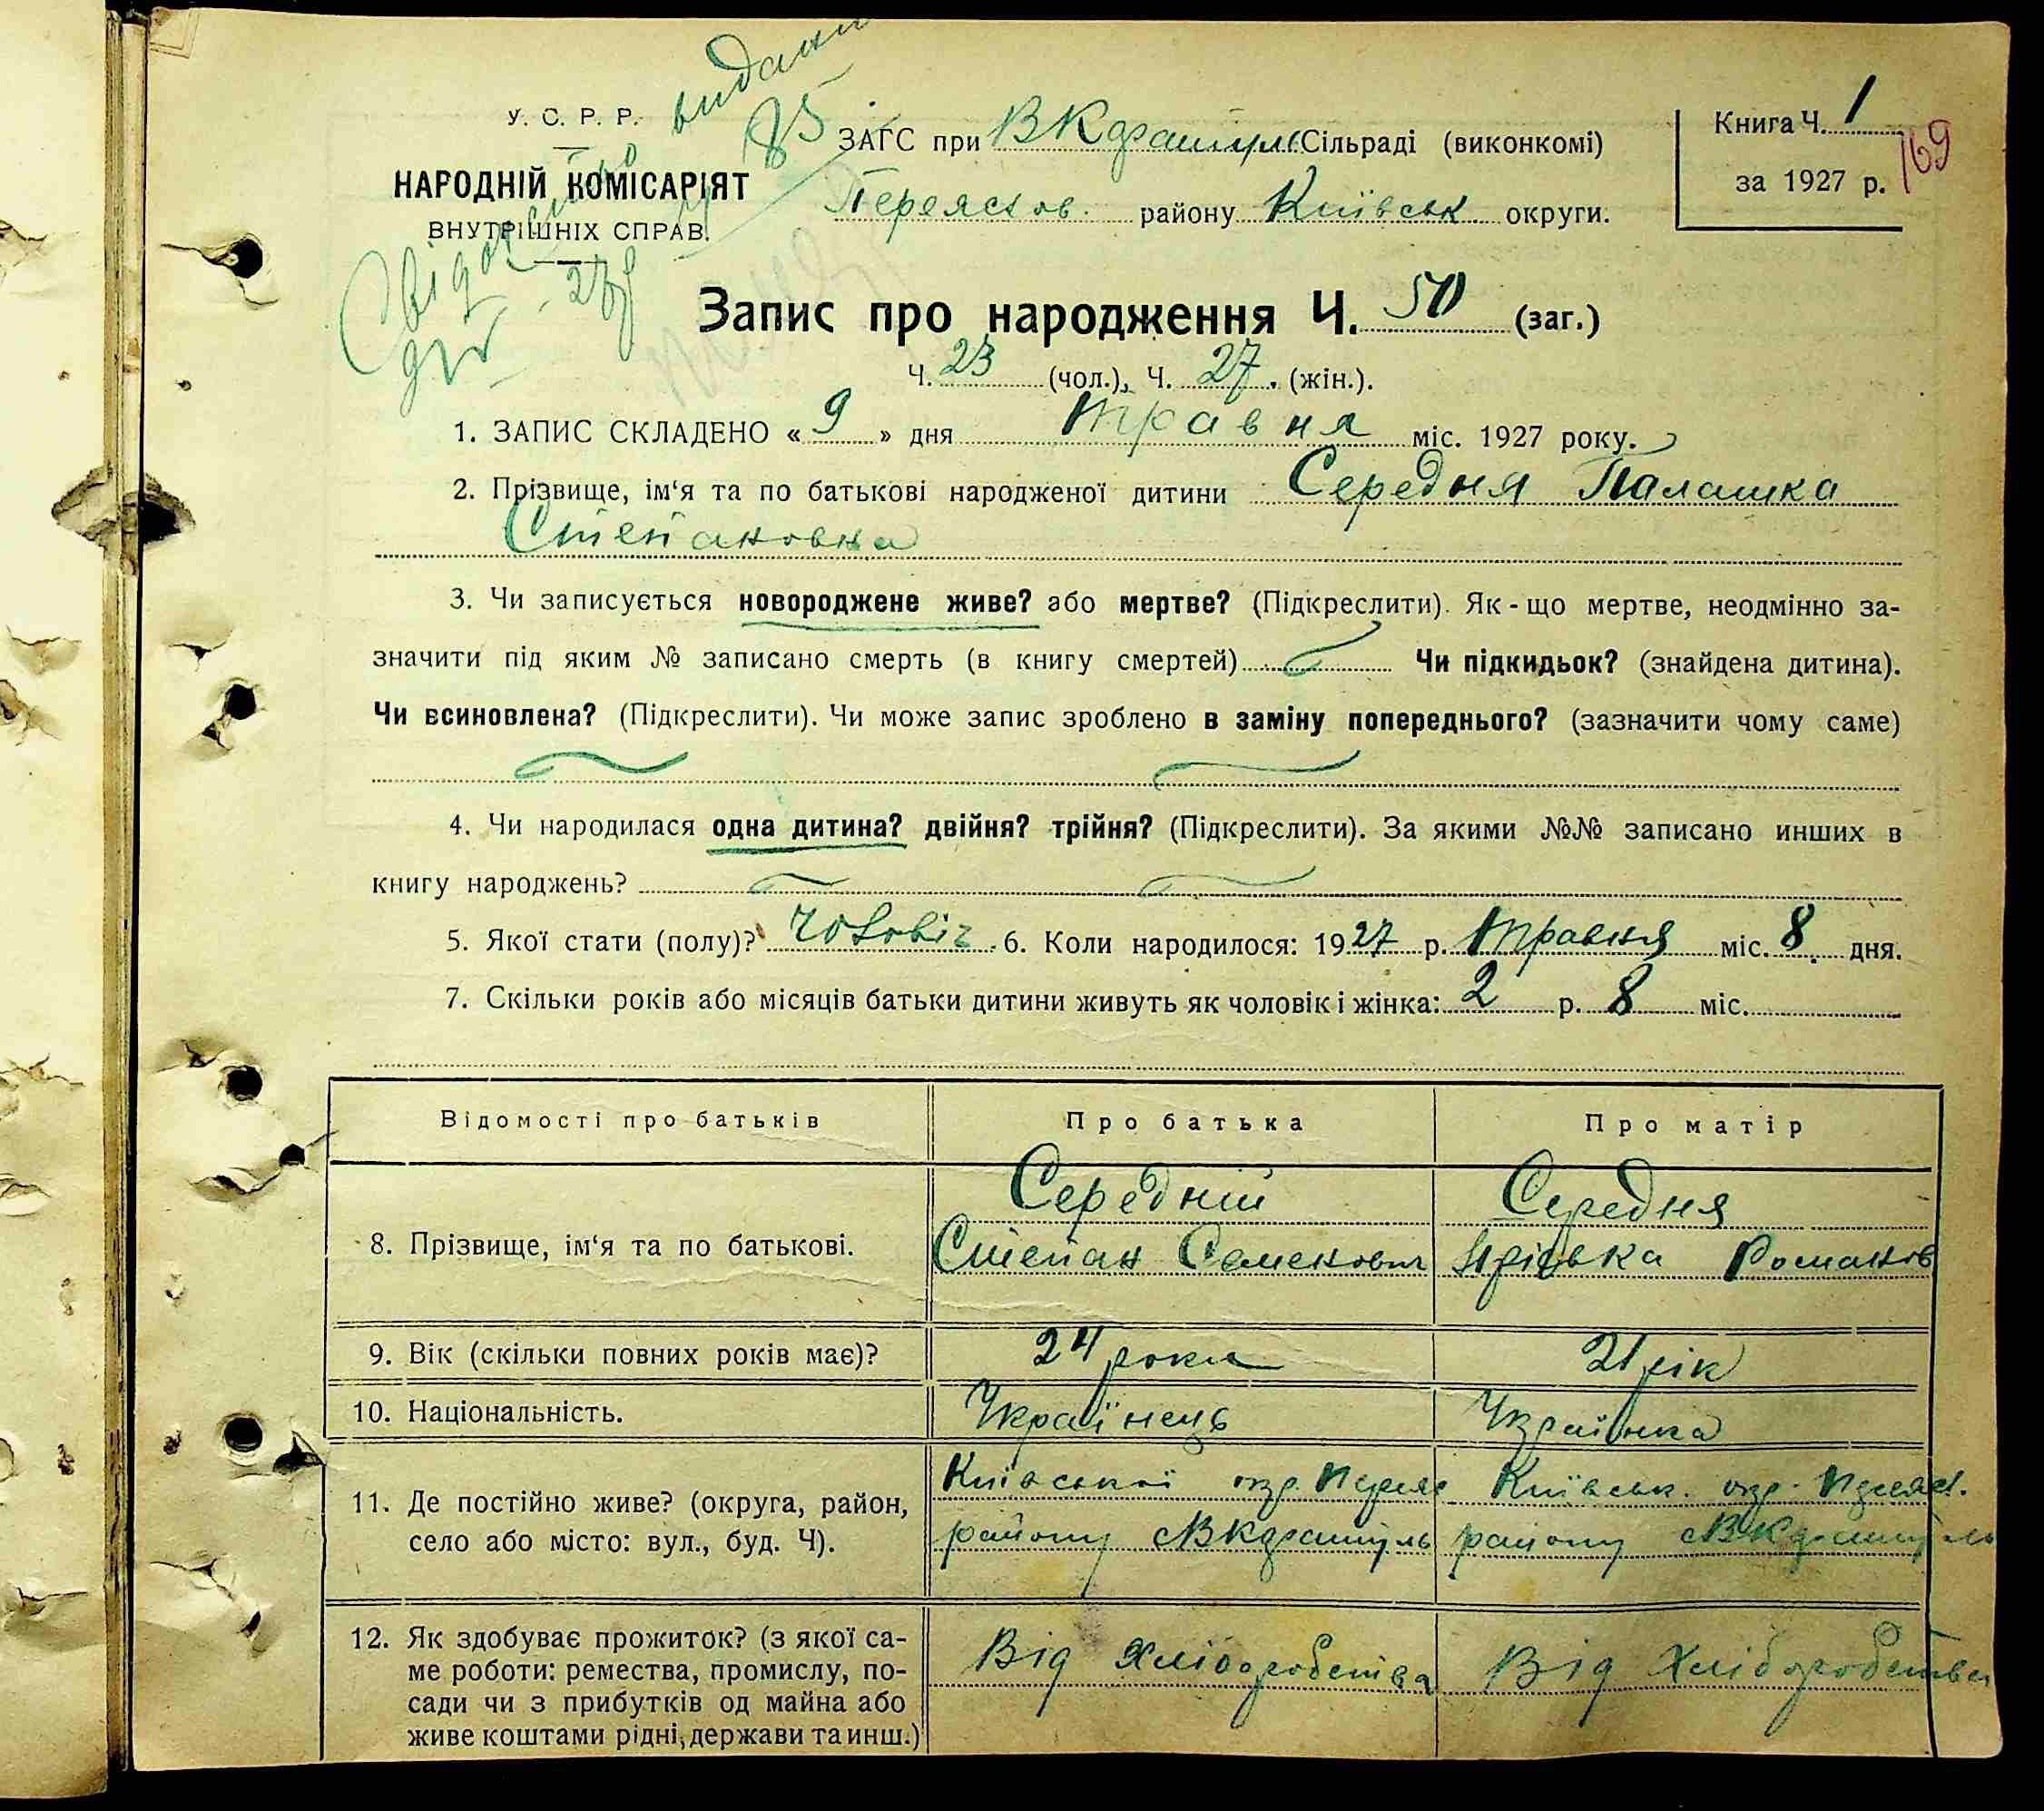 видано
У. С. Р. Р.
85
ЗАГС при ВКаратуль Сільраді (виконкомі)
Книга Ч. 1
169
НАРОДНІЙ КОМІСАРІЯТ
Переяслов. району Київськ. округи.
за 1927 р.
ВНУТРІШНІХ СПРАВ.
Запис про народження Ч. 50 (заг.)
Ч. 23 (чол.), Ч. 27. (жін.).
1. ЗАПИС СКЛАДЕНО « 9 » дня травня міс. 1927 року.
2. Прізвище, ім‘я та по батькові народженої дитини Середня Палашка
Степановна
3. Чи записується новороджене живе? або мертве? (Підкреслити). Як - що мертве, неодмінно за-
значити під яким № записано смерть (в книгу смертей) Чи підкидьок? (знайдена дитина).
Чи всиновлена? (Підкреслити). Чи може запис зроблено в заміну попереднього? (зазначити чому саме)
4. Чи народилася одна дитина? двійня? трійня? (Підкреслити). За якими №№ записано инших в
книгу народжень?
5. Якої стати (полу)? 6. Коли народилося: 1927 р. травня міс. 8 дня.
7. Скільки років або місяців батьки дитини живуть як чоловік і жінка: 2 р. 8 міс.
Відомості про батьків Про батька Про матір
Середній Середня
8. Прізвище, ім‘я та по батькові. Степан Семенович Романів
9. Вік (скільки повних років має)? 24 роки 21 рік
10. Національність. Українець Українка
11. Де постійно живе? (округа, район, Київської окр. Переяс Київськ. окр. Переясл.
село або місто: вул., буд. Ч). району ВКаратуль району ВКаратуль
12. Як здобуває прожиток? (з якої са- Від хліборобства Від хліборобства
ме роботи: ремества, промислу, по-
сади чи з прибутків од майна або
живе коштами рідні, держави та инш.)